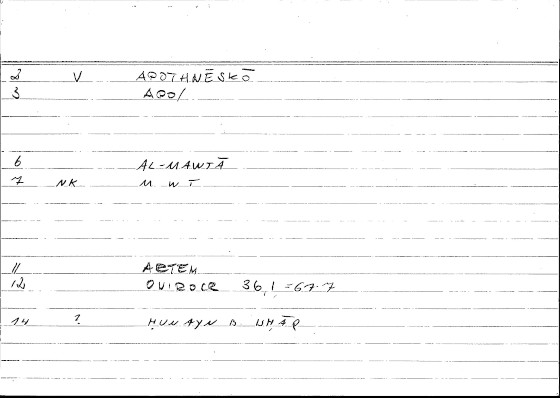 2 V APOTHNĒSKŌ
3 APO/
6 AL-MAWTĀ
7 NK MWT
11 ARTEM
12 OVIROCR 36,1 = 67.7
14 ? ḤUNAYN B